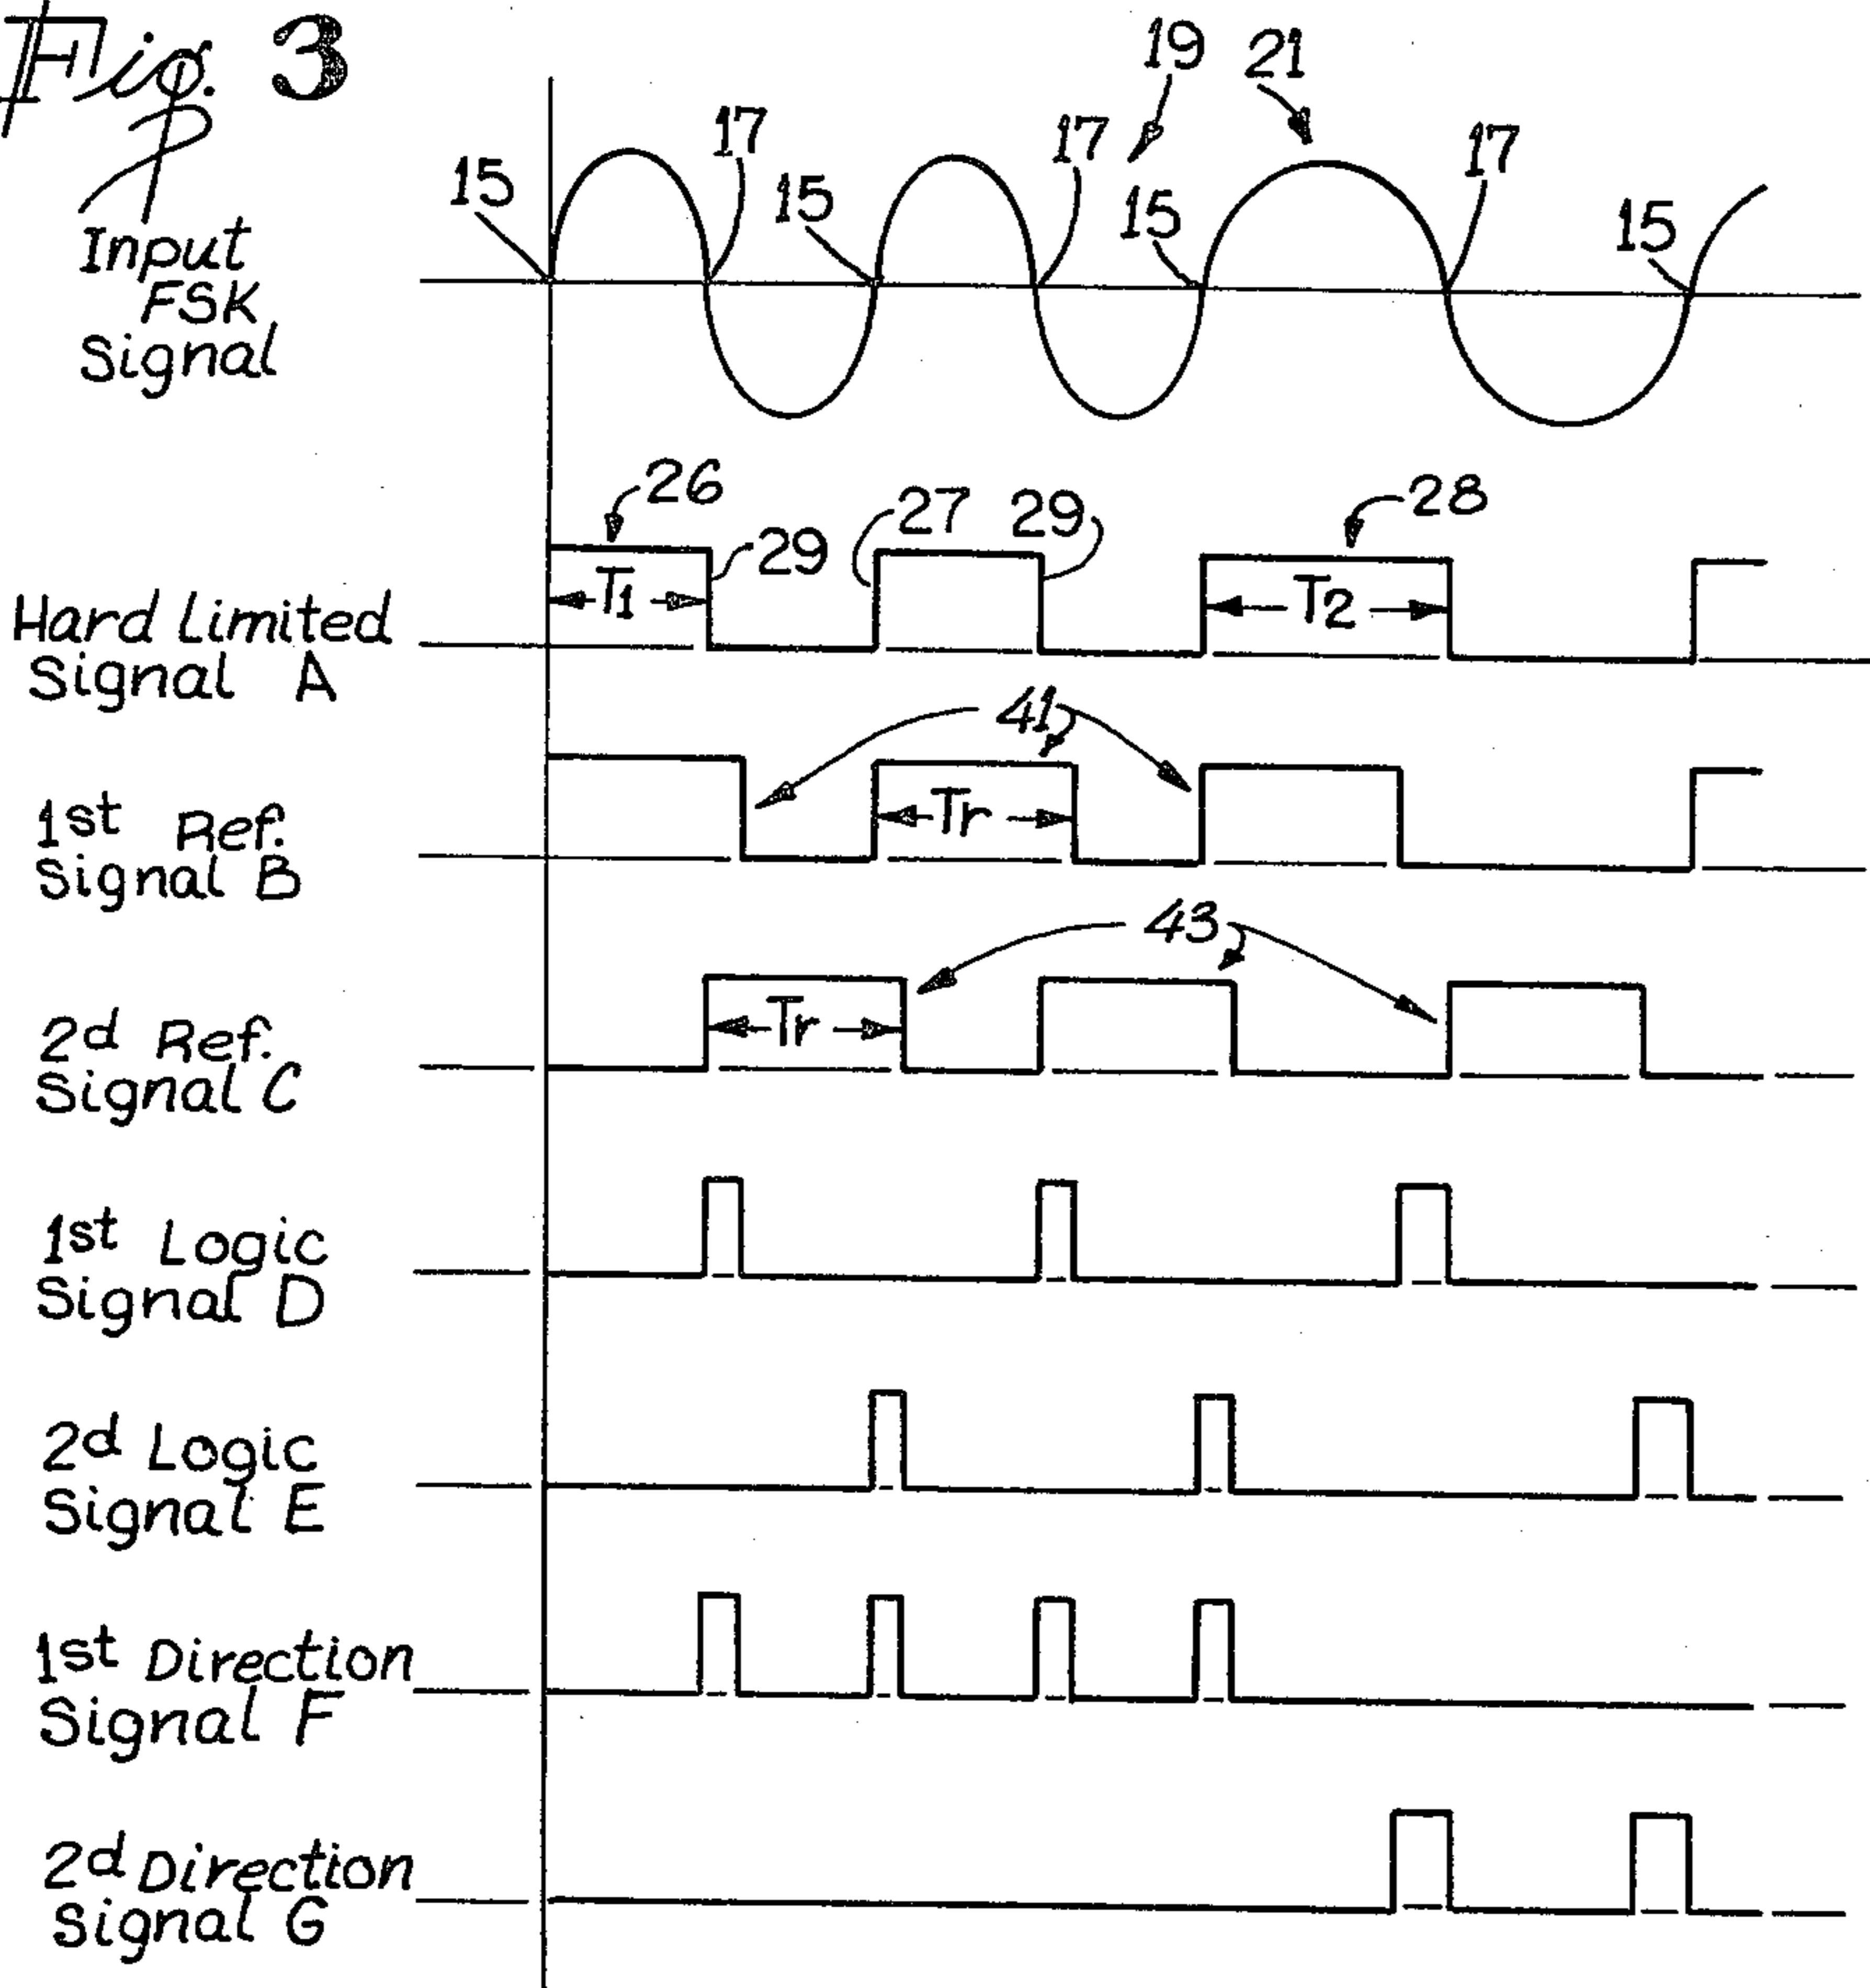 Fig. 3
19 21
15 17 15 17 15 17 15
Input
FSK
Signal
26 29 27 29 28
T1 T2
Hard Limited
Signal A
41
Tr
1st Ref.
Signal B
43
Tr
2d Ref.
Signal C
1st Logic
Signal D
2d Logic
Signal E
1st Direction
Signal F
2d Direction
Signal G